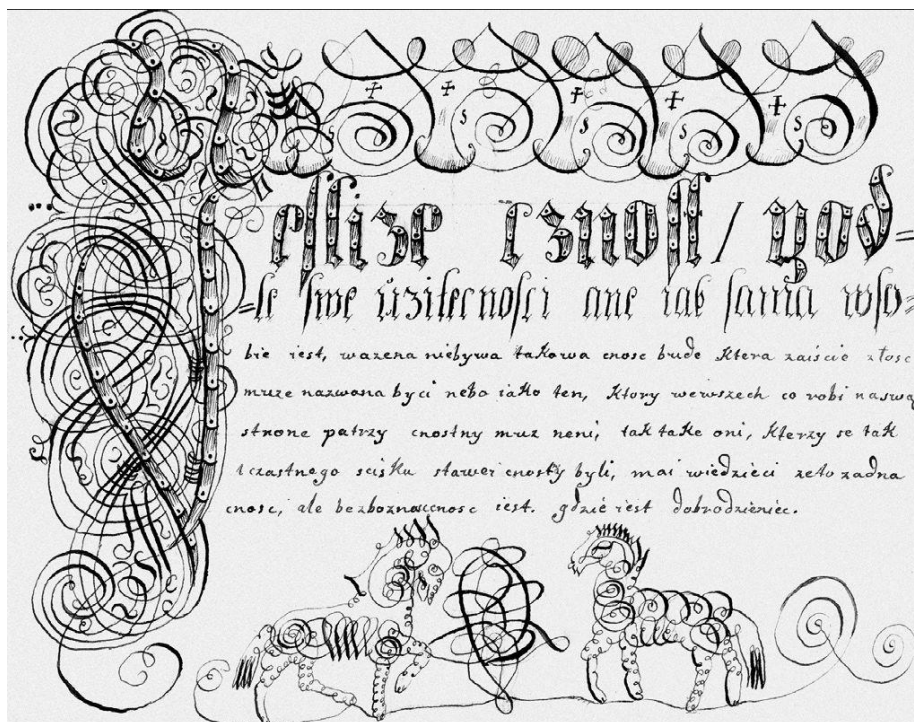 Jesslize cznosst / pod=
=le swe uzitecnosci ane iak sama w so=
bie iest, wazena niebywa takowa cnosc bude ktera zaiscie złosc
muze nazwana byci nebo iako ten, ktory wewszech co robi naswą
strone patrzy cnostny muz neni, tak take oni, kterzy se tak
czastnego scisku cnosty byli, mai wiedzieci zeto zadna
cnosc, ale bezboznaccnosc iest. gdzie iest dobrodzieniec.